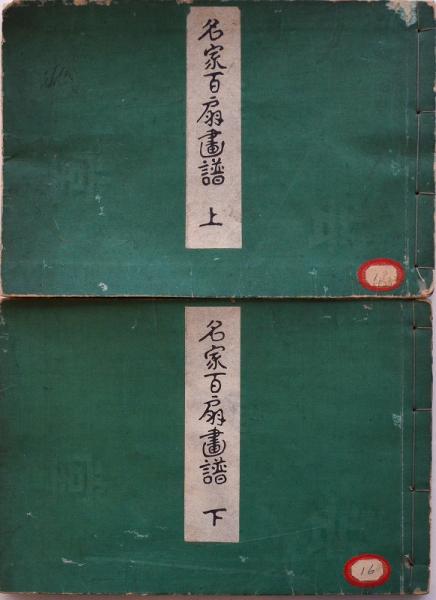 名家百扇畫譜 上
名家百扇畫譜 下
16